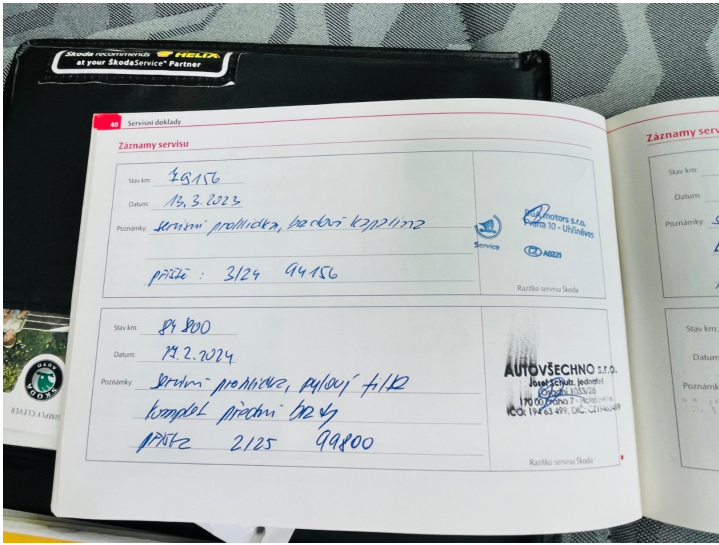 Škoda recommends HELIX
at your ŠkodaService® Partner
40 Servisní doklady
Záznamy servisu
Stav km: 79156
Datum: 13.3.2023
Poznámky: servisní prohlídka, brzdová kapalina
příště: 3/24 94156
Service
motors s.r.o.
Praha 10 - Uhříněves
CZ A0221
Razítko servisu Škoda
Stav km: 84800
Datum: 17.2.2024
Poznámky: servisní prohlídka, pylový filtr
komplet přední brzdy
příště 2/25 99800
AUTOVŠECHNO s.r.o.
Josef Schulz, jednatel
1053/28
170 00 Praha 7
IČO: 194 63 499, DIČ:
Razítko servisu Škoda
Záznamy serv
Stav km:
Datum:
Poznámky:
Stav km:
Datum
Poznámk
SIMPLY CLEVER
ŠKODA
AUTO